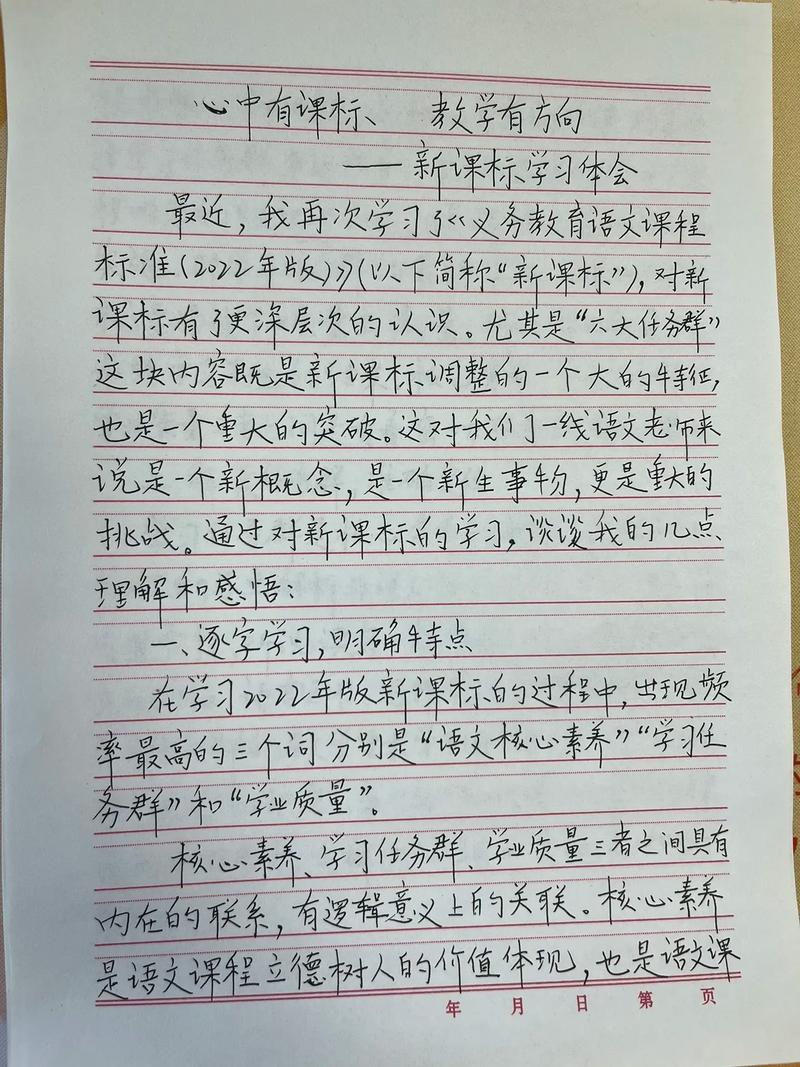 心中有课标、 教学有方向
——新课标学习体会
最近，我再次学习了《义务教育语文课程
标准（2022年版）》（以下简称“新课标”），对新
课标有了更深层次的认识。尤其是“六大任务群”
这块内容既是新课标调整的一个大的特征，
也是一个重大的突破。这对我们一线语文老师来
说是一个新概念，是一个新生事物，更是重大的
挑战。通过对新课标的学习，谈谈我的几点
理解和感悟：
一、逐字学习，明确特点
在学习2022年版新课标的过程中，出现频
率最高的三个词分别是“语文核心素养”“学习任
务群”和“学业质量”。
核心素养、学习任务群、学业质量三者之间具有
内在的联系，有逻辑意义上的关联。核心素养
是语文课程立德树人的价值体现，也是语文课
年 月 日 第 页